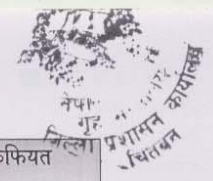 नेपा
गृह
जिल्ला प्रशासन कार्यालय
चितवन
फियत